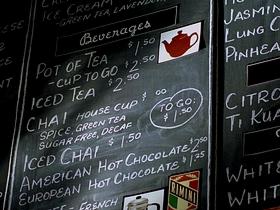 ICE CREAM
GREEN TEA, LAVENDER
Beverages
POT OF TEA $1.50
-CUP TO GO $2.50
ICED TEA $2.50
CHAI HOUSE CUP
SPICE, GREEN TEA
SUGAR FREE, DECAF
TO GO:
$1.50
ICED CHAI $1.50
AMERICAN HOT CHOCOLATE $2.50
EUROPEAN HOT CHOCOLATE $1.25
- FRENCH
RIMINI
JASMIN
LUNG
PINHE
CITRO
TI KUA
WHITE
WHIT